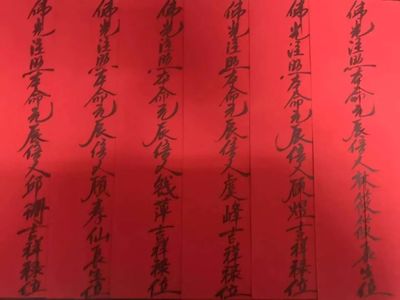 佛光注照本命元辰信人林长生位
佛光注照本命元辰信人顾煜吉祥禄位
佛光注照本命元辰信人虞峰吉祥禄位
佛光注照本命元辰信人钱萍吉祥禄位
佛光注照本命元辰信人顾春仙长生位
佛光注照本命元辰信人邱珊吉祥禄位